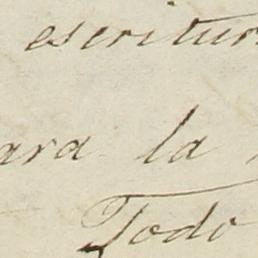 escritur
ara la
Todo